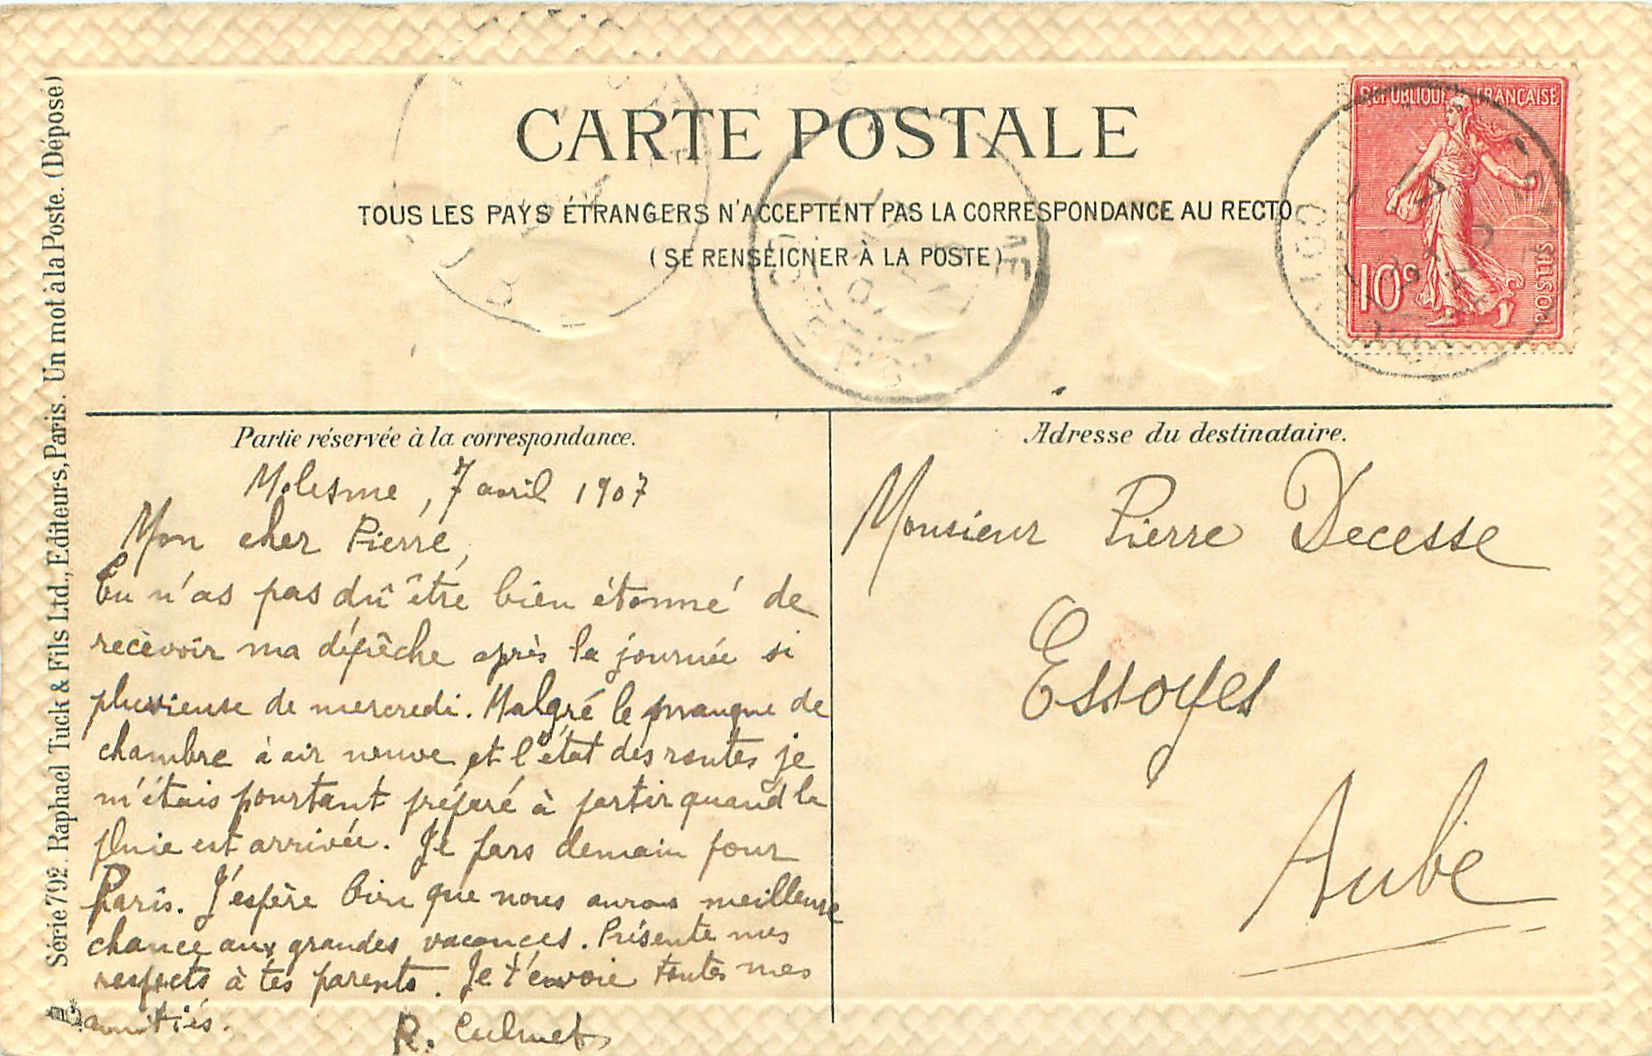 CARTE POSTALE
TOUS LES PAYS ÉTRANGERS N'ACCEPTENT PAS LA CORRESPONDANCE AU RECTO
(SE RENSEIGNER À LA POSTE)
RÉPUBLIQUE FRANÇAISE
10c
POSTES
Série 792. Raphael Tuck & Fils Ltd., Editeurs, Paris. Un mot à la Poste. (Déposé)
Partie réservée à la correspondance.
Molesme, 7 avril 1907
Mon cher Pierre,
Tu n'as pas dû être bien étonné de
recevoir ma dépêche après la journée si
pluvieuse de mercredi. Malgré le manque de
chambre à air neuve et l'état des routes je
m'étais pourtant préparé à partir quand la
pluie est arrivée. Je pars demain pour
Paris. J'espère bien que nous aurons meilleure
chance aux grandes vacances. Présente mes
respects à tes parents. Je t'envoie toutes mes
amitiés.
R.
Adresse du destinataire.
Monsieur Pierre Decesse
Essoyes
Aube